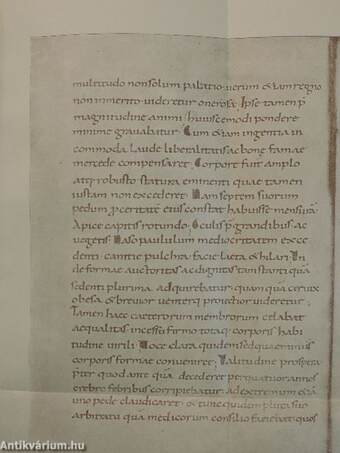 multitudo non solum palatio uerum & iam regno
non inmerito uideretur onerosa. Ipse tamen p̄
magnitudine animi huiuscemodi pondere
minime grauabatur. Cum & iam ingentia in
commoda laude liberalitatis ac bonae famae
mercede compensaret. Corpore fuit amplo
atq; robusto statura eminenti quae tamen
iustam non excederet. Nam septem suorum
pedum proceritatē eius constat habuisse mensurā
Apice capitis rotundo. Oculis p̄grandibus ac
uegetis. Naso paululum mediocritatem exce
denti. canitie pulchra. facie laeta & hilari. Un
de formae auctoritas ac dignitas tam stanti quā
sedenti plurima adquirebatur. quamquā ceruix
obesa & breuior uenterq; proiectior uideretur.
Tamen haec caeterorum membrorum celabat
aequalitas. incessu firmo totaq; corporis habi
tudine uirili. Uoce clara quidem sed quae minus
corporis formae conueniret. Ualitudine prospera
p̄ter quod ante quā decederet per quatuor annos
crebro febribus corripiebatur ad extremum & iā
uno pede claudicaret. & tunc quidem plura suo
arbitratu quā medicorum consilio faciebat quos
antikvárium.hu